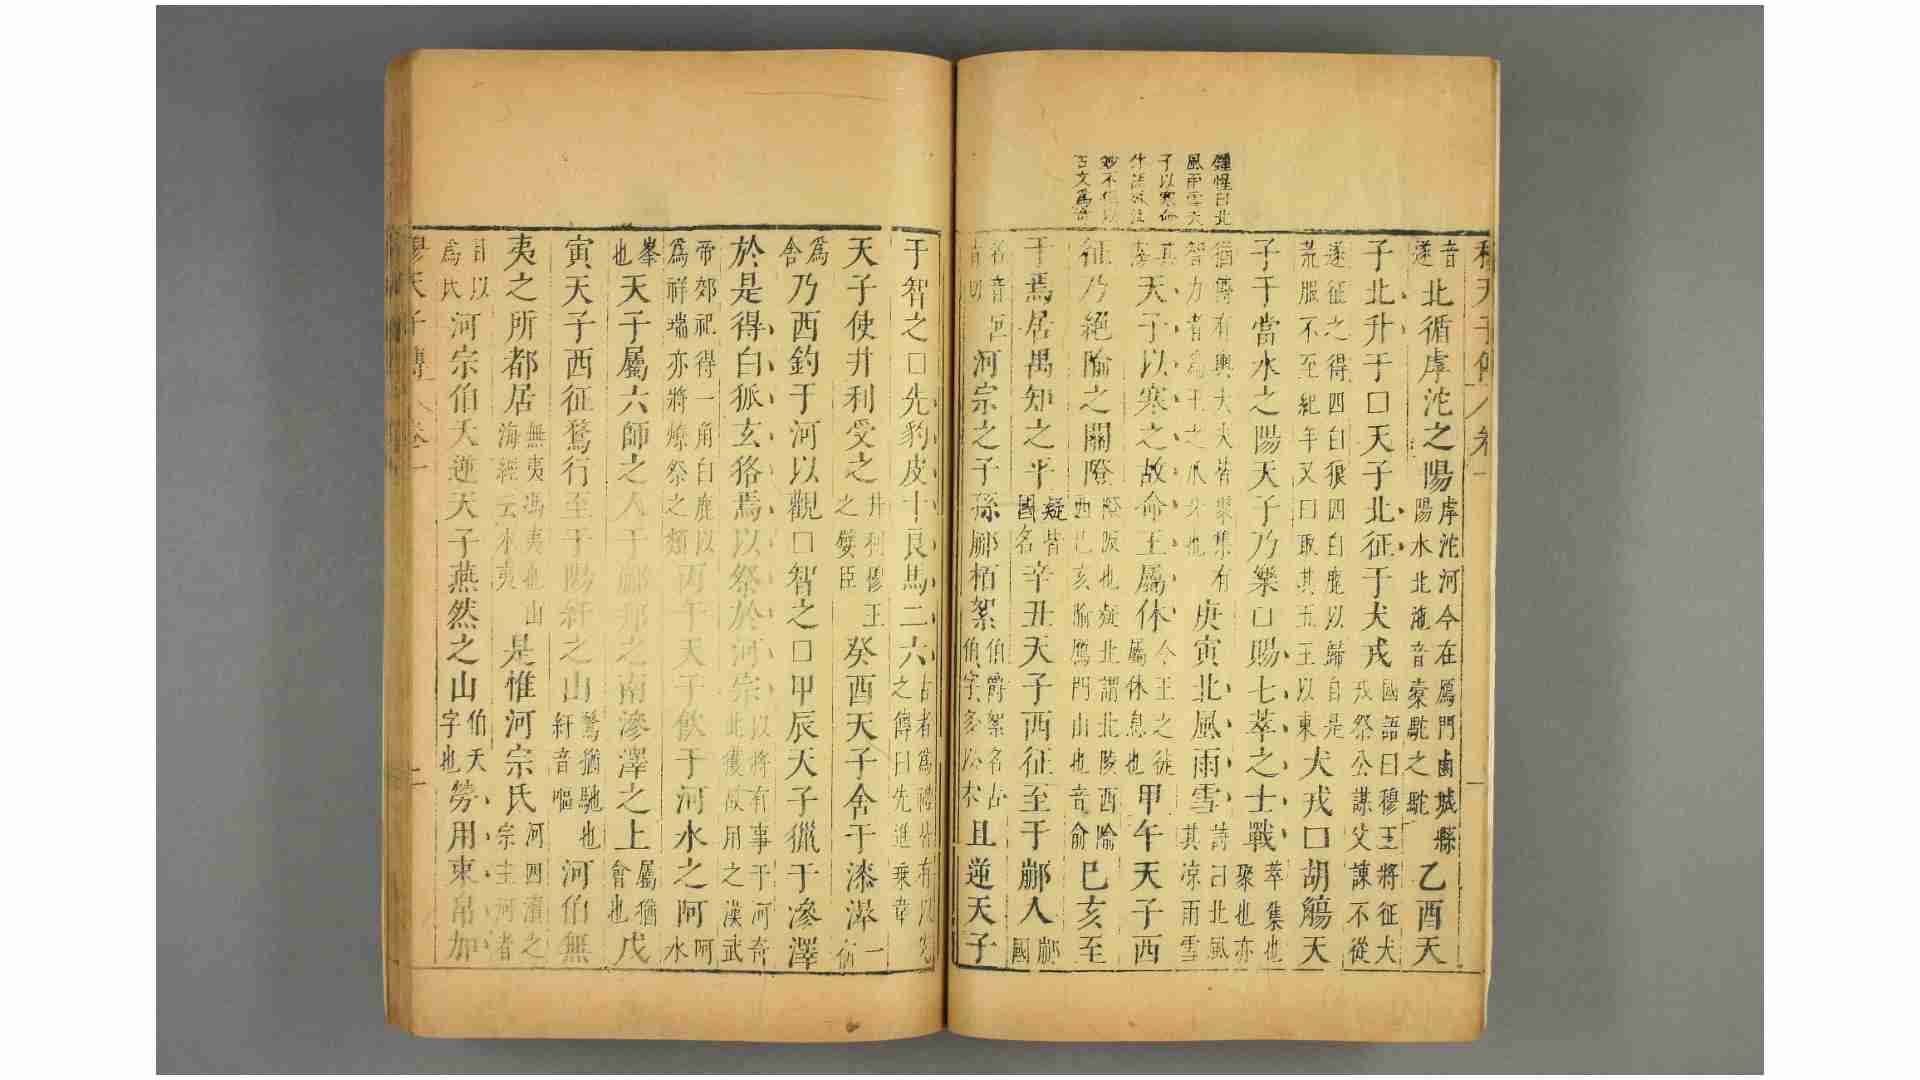 穆天子傳 卷一 一
鍾惺曰北
風雨雪天
子以寒命
音遂北循虖沱之陽虖沱河今在鴈門鹵城縣陽水北沲音橐駝之駝乙酉天
子北升于□天子北征于犬戎國語曰穆王將征犬戎祭公謀父諫不從
遂征之得四白狼四白鹿以歸自是荒服不至紀年又曰取其五王以東犬戎□胡觴天
子于當水之陽天子乃樂□賜七萃之士戰萃集也聚也亦
猶傳有輿大夫皆聚集有智力者為王之爪牙也庚寅北風雨雪詩曰北風其凉雨雪
其滂天子以寒之故命王屬休今王之徒屬休息也甲午天子西
征乃絕隃之關隥隥阪也疑北謂北陵西隃西已亥隃鴈門山也音俞己亥至
于焉居禺知之平疑皆國名辛丑天子西征至于䣙人䣙國
名音河宗之子孫䣙栢絮伯爵絮名古伯字多以木且逆天子
于智之□先豹皮十良馬二六古者為禮皆有以先之傳曰先進乘韋
天子使井利受之井利穆王之嬖臣癸酉天子舍于漆澤一宿
為舍乃西釣于河以觀□智之□甲辰天子獵于滲澤
於是得白狐玄狢焉以祭於河宗以將有事于河奇此獲故用之漢武
帝郊祀得一角白鹿以為祥瑞亦將燎祭之類丙午天子飲于河水之阿阿水
峯也天子屬六師之人于䣙邦之南滲澤之上屬猶會也戊
寅天子西征騖行至于陽紆之山騖猶馳也紆音嘔河伯無
夷之所都居無夷馮夷也山海經云冰夷是惟河宗氏河四瀆之宗主河者
因以為氏河宗伯夭逆天子燕然之山伯夭字也勞用束帛加
穆天子傳 卷一 二